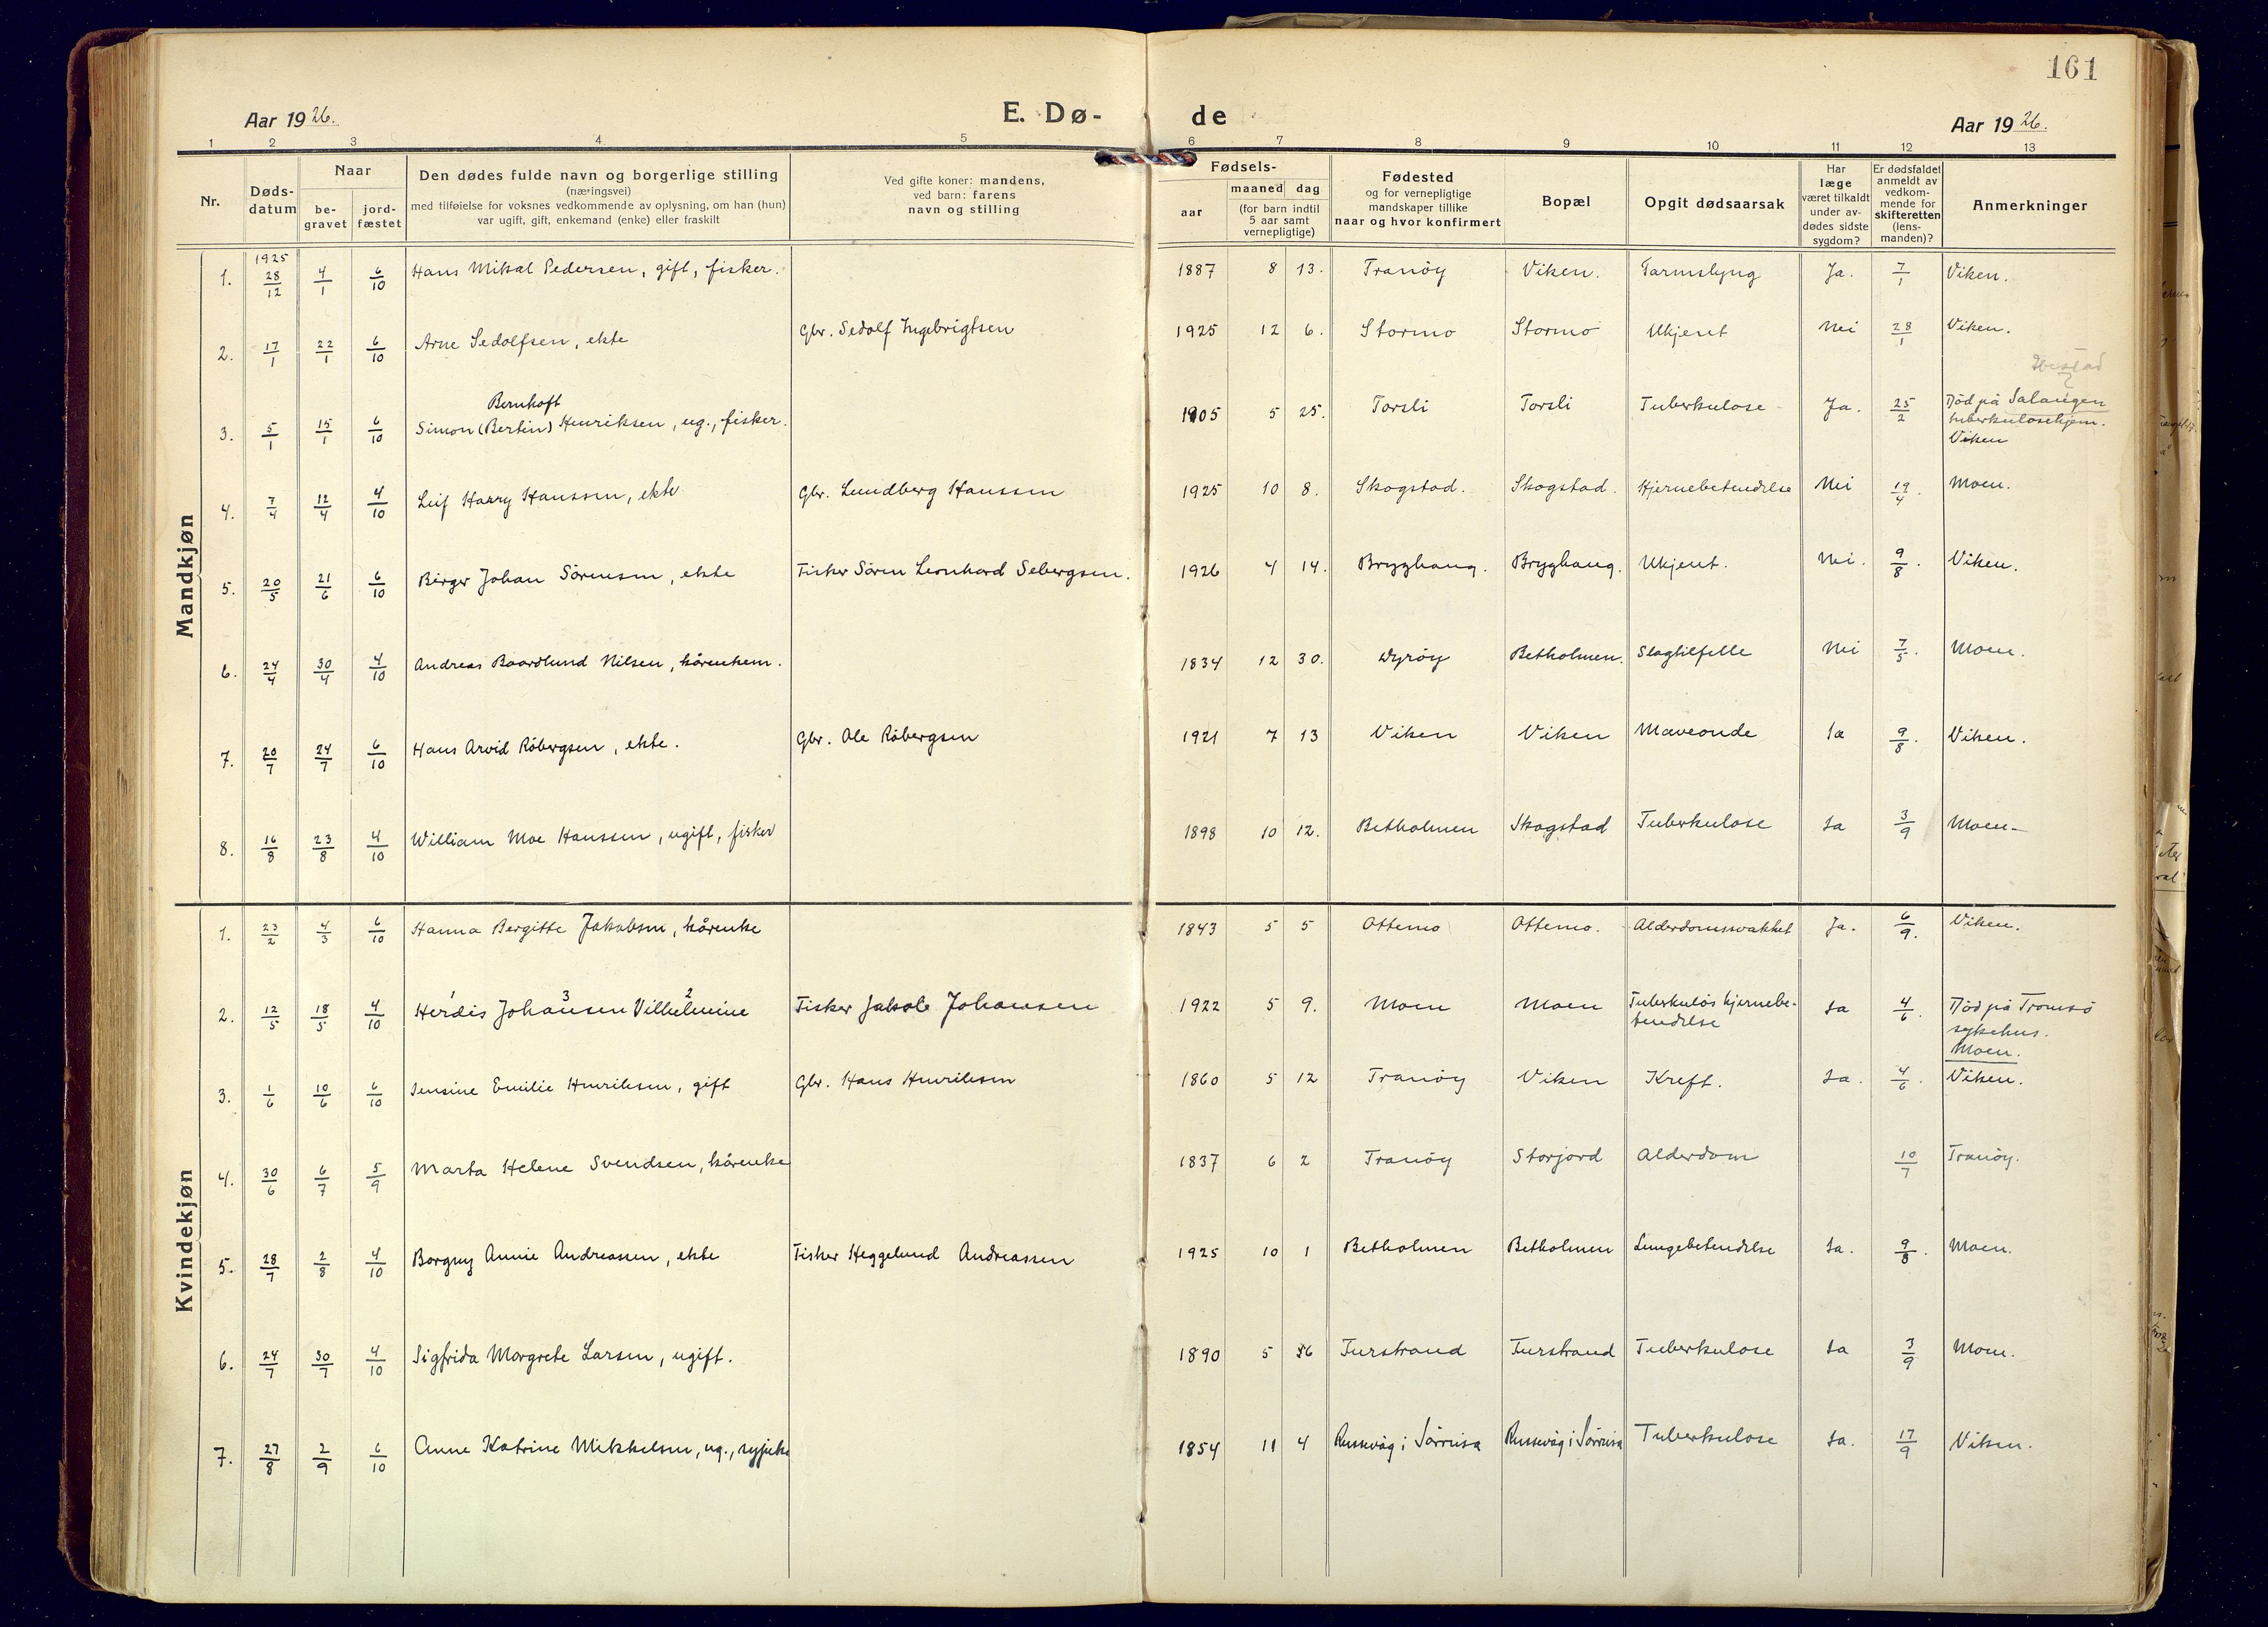 161
Aar 1926.
E. Dø-
de
Aar 1926.
1 2 3 4 5 6 7 8 9 10 11 12 13
Nr.
Døds-
datum
Naar
be-
gravet
jord-
fæstet
Den dødes fulde navn og borgerlige stilling
(næringsvei)
med tilføielse for voksnes vedkommende av oplysning, om han (hun)
var ugift, gift, enkemand (enke) eller fraskilt
Ved gifte koner: mandens,
ved barn: farens
navn og stilling
Fødsels-
aar
maaned dag
(for barn indtil
5 aar samt
vernepligtige)
Fødested
og for vernepligtige
mandskaper tillike
naar og hvor konfirmert
Bopæl
Opgit dødsaarsak
Har
læge
været tilkaldt
under av-
dødes sidste
sygdom?
Er dødsfaldet
anmeldt av
vedkom-
mende for
skifteretten
(lens-
manden)?
Anmerkninger
Mandkjøn
1925
1. 28/12 4/1 6/10 Hans Mikal Pedersen, gift, fisker. 1887 8 13. Tranøy Viken. Tarmslyng Ja. 7/1 Viken.
2. 17/1 22/1 6/10 Arne Sedolfsen, ekte Gbr. Sedolf Ingebrigtsen 1925 12 6. Stormo Stormo Ukjent Nei 28/1 Viken.
Ibestad
?
Bernhoft
3. 5/1 15/1 6/10 Simon (Bertin) Henriksen, ug., fisker. 1905 5 25. Torsli Torsli Tuberkulose Ja. 25/2 Död på Salangen
tuberkulosehjem.
Viken
4. 7/4 12/4 4/10 Leif Harry Hanssen, ekte Gbr. Lundberg Hanssen 1925 10 8. Skogstad. Skogstad. Hjernebetendelse Nei 19/4 Moen.
5. 20/5 21/6 6/10 Birger Johan Sörensen, ekte Fisker Sören Leonhard Sebergsen. 1926 4 14. Brygghaug. Brygghaug. Ukjent. Nei. 9/8. Viken.
6. 24/4 30/4 4/10 Andreas Baardlund Nilsen, kårenkem. 1834 12 30. Dyröy Betholmen. Slagtilfelle Nei 7/5. Moen.
7. 20/7 24/7 6/10 Hans Arvid Röbergsen, ekte. Gbr. Ole Röbergsen 1921 7 13 Viken Viken Maveonde Ja 9/8. Viken.
8. 16/8 23/8 4/10 William Moe Hanssen, ugift, fisker 1898 10 12. Betholmen Skogstad Tuberkulose Ja 3/9 Moen-
Kvindekjøn
1. 23/2 4/3 6/10 Hanna Bergitte Jakobsen, kårenke 1843 5 5 Ottemo Ottemo. Alderdomssvakhet Ja. 6/9. Viken.
1 3 2
2. 12/5 18/5 4/10 Herdis Johansen Vilhelmine Fisker Jakob Johansen 1922 5 9. Moen Moen Tuberkulös hjernebe-
tendelse Ja 4/6. Död på Tromsö
sykehus.
Moen.
3. 1/6 10/6 6/10 Jensine Emilie Henriksen, gift Gbr. Hans Henriksen 1860 5 12 Tranöy Viken Kreft. Ja. 4/6. Viken.
4. 30/6 6/7 5/9 Marta Helene Svendsen, kårenke 1837 6 2 Tranöy Storjord Alderdom 10/7 Tranöy.
5. 28/7 2/8 4/10 Borgny Annie Andreassen, ekte Fisker Heggelund Andreassen 1925 10 1 Betholmen Betholmen Lungebetendelse Ja. 9/8. Moen.
6. 24/7 30/7 4/10 Sigfrida Margrete Larsen, ugift. 1890 5 Furstrand Furstrand Tuberkulose Ja 3/9 Moen.
7. 27/8 2/9 6/10 Anne Katrine Mikkelsen, ug., 1854 11 4 Russevåg i Sörreisa Russevåg i Sörreisa Tuberkulose Ja. 17/9 Viken.